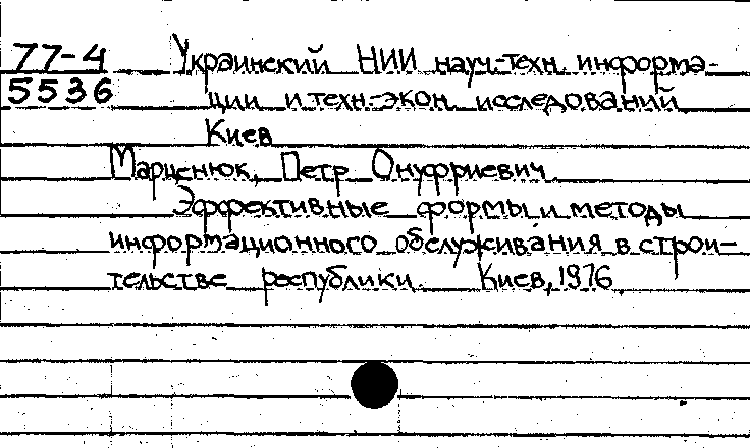 77-4 Украинский НИИ науч.-техн. информа-
5536 ции и техн.-экон. исследований
Киев
Марценюк, Петр Онуфриевич
Эффективные формы и методы
информационного обслуживания в строи-
тельстве республики. Киев, 1976